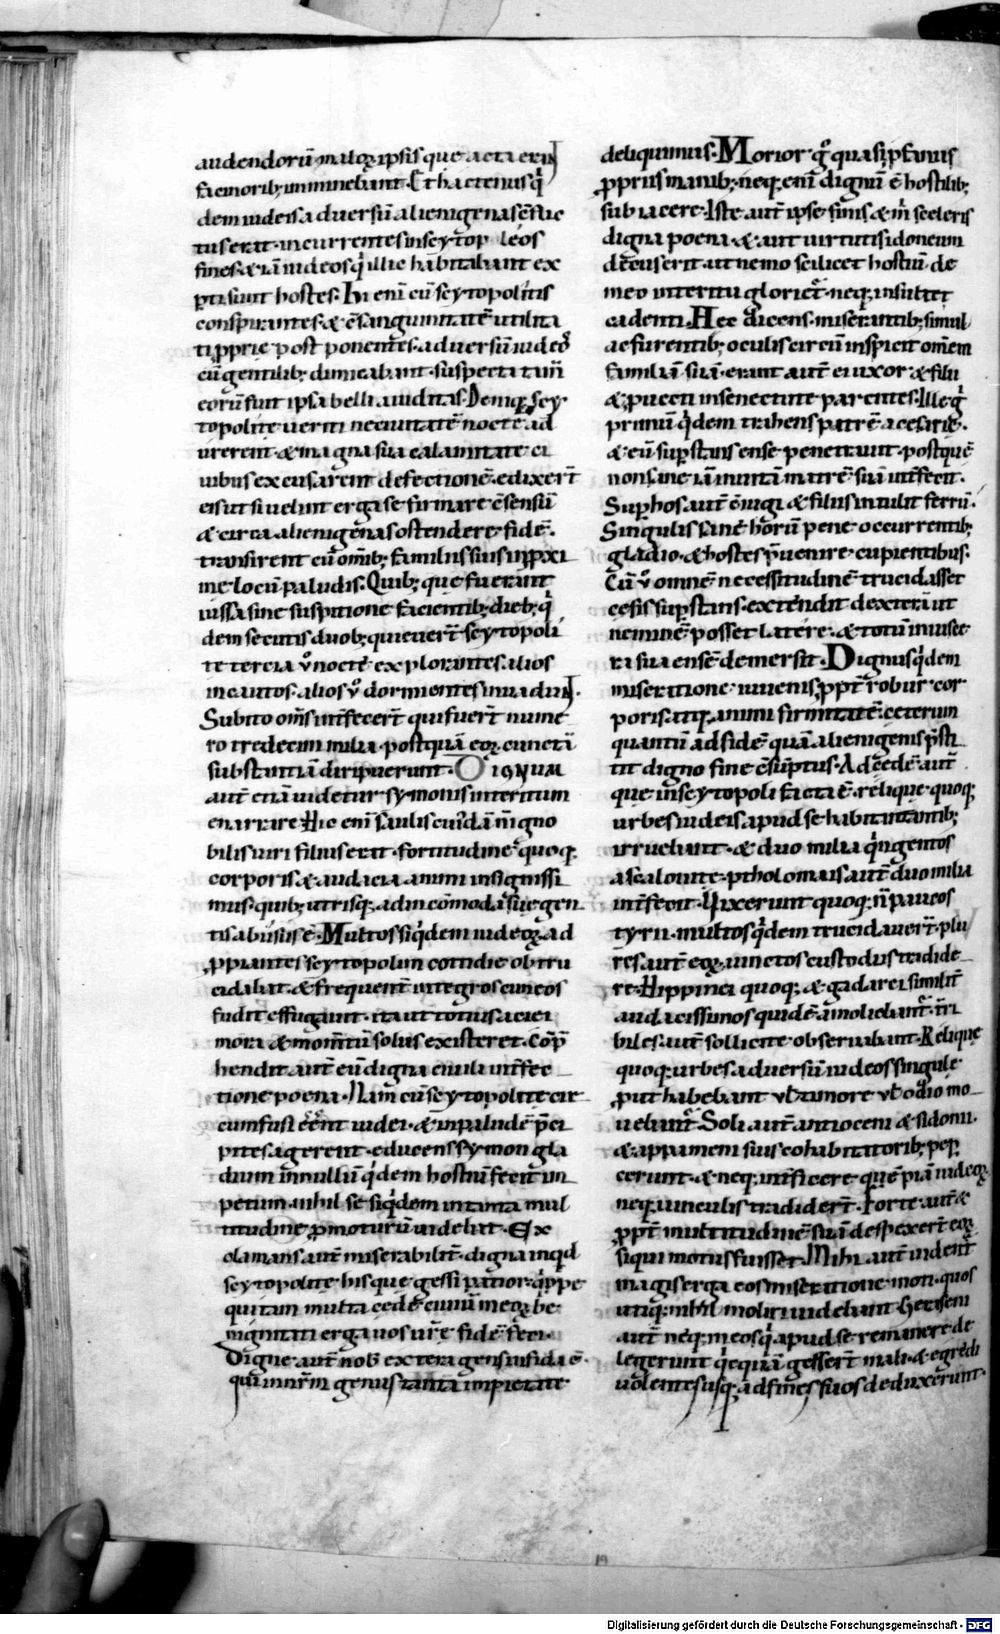 audendorū maloꝝ ipsis que acta erāt
facinorib; imminebant. Et hactenus q
dem iudeis aduersū alienigenas cōflic
tus erat. incurrentes in seytopoleos
fines. & iā iudeos q illic habitabant ex
pti sunt hostes. Hi eni cū seytopolitis
conspirantes. & cōsanguinitatē utilita
ti pprie post ponentes. aduersū iudeos
cū gentilib; dimicabant. suspecta tam̄
eorū fuit ipsa belli auiditas. Deniq; sey
topolite ueriti ne ciuitatē nocte ad
urerent. & magna sua calamitate ci
uibus excusarent defectionē. edixert̄
eis ut si uelint erga se firmare cōsensū
& circa alienigenas ostendere fidē.
transirent cū omīb; familiis suis in pxi
me locū paludis. Quib; que fuerant
iussa sine suspitione facientib; dieb; q
dem secutis duob; quieuert̄ seytopoli
te tercia v̊ nocte explorantes. alios
incautos. alios v̊ dormientes inuadunt.
Subito om̄s int̄fecert̄ qui fuert̄ nume
ro tredecim milia. postquā eoꝝ cunctā
substantiā diripuerunt. DIGNUM
aut̄ etiā uidetur symonis interitum
enarrare. Hic eni saulis cuidā n̄ igno
bilis uiri filius erat. fortitudine quoq;
corporis & audacia animi insignissi
mus. quib; utrisq; ad incōmoda sue gen
tis abusus ē. Multos siqdem iudeoꝝ ad
ppiantes seytopolim cottidie obtru
cidabat. & frequent̄ integros cuneos
fudit effugauit. ita ut totius aciei
mora & momtū solus existeret. Cōp̄
hendit aut̄ eū digna ciuili int̄fec
tione poena. Nam cū seytopolite cir
cumfusi eēnt iudei. & in paludē p̄ci
pites agerent. educens symon gla
dium in nullū qdem hostiū fecit im
petum. nihil se siqdem in tanta mul
titudine pmoturū uidebat. Ex
clamans aut̄ miserabilit̄. digna inqd
seytopolite hisque gessi patior. qppe
qui tam multa cede ciuiū meoꝝ be
nignitati erga uos ur̄e fidē feci.
Digne aut̄ nob̄ extera gens infida ē.
qui in nr̄m genus tanta impietate
deliquimus. Morior g̊ quasi pfanus
ppriis manib; neq; eni dignū ē hostilib;
subiacere. Iste aut̄ ipse finis & m̄ sceleris
digna poena. & aut uirtutis idoneum
decus erit. ut nemo scilicet hostiū de
meo interitu gloriet̄. neq; insultet
cadenti. Hec dicens. miserantib; simul
ac furentib; oculis circūinspicit omēm
familiā suā. erant aut̄ ei uxor & filii
& puecti in senectute parentes. Ille g
primū qdem trahens patrē a cesarie.
& eū supstans ense penetrauit. postquē
non sane iā inuitā matrē suā int̄fecit.
Sup hos aut̄ ciugi & filiis intulit ferrū.
Singulis sane horū pene occurrentib;
gladio. & hostes puenire cupientibus.
Cū v̊ omnē necessitudinē trucidasset
cesis supstans. extendit dexterā ut
neminē posset latere. & totū in uisce
ra sua ensē demersit. Dignus qdem
miseratione iuuenis ppt̄ robur cor
poris atq; animi firmitatē. ceterum
quantū ad fidē quā alienigenis p̄sti
tit digno fine cōsūptus. Ad cedē aut̄
que in seytopoli facta ē. relique quoq;
urbes iudeis apud se habitantantib;
irruebant. & duo milia qngentos
ascalonite. ptholomais aut̄ duo milia
int̄fecit. Uixerunt quoq; n̄ paucos
tyrii. multos qdem trucidauert̄. plu
res aut̄ eoꝝ uinctos custodiis tradide
re. Hippinei quoq; & gadarei similit̄
audacissimos quidē amoliebant̄. t̄ri
biles aut̄ sollicite obseruabant. Relique
quoq; urbes aduersū iudeos singule
put habebant vł timore vł odio mo
uebant̄. Soli aut̄ antioceni & sidonii.
& appameni suis cohabitatorib; pep
cerunt. & neq; int̄ficere quēpiā iudeoꝝ
neq; uinculis tradidert̄. Forte aut̄ &
ppt̄ multitudinē suā despexert̄ eoꝝ
siqui motus fuisset. Mihi aut̄ uidet̄
magis erga eos miseratione moti. quos
utiq; nihil moliri uidebant. Geraseni
aut̄ neq; in eos q apud se remanere de
legerunt qcquā gessert̄ mali. & egredi
uolentes usq; ad fines suos deduxerunt.
19
Digitalisierung gefördert durch die Deutsche Forschungsgemeinschaft - DFG